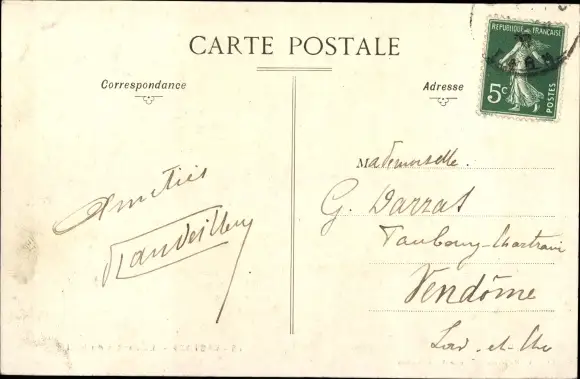 CARTE POSTALE
Correspondance
Adresse
REPUBLIQUE FRANÇAISE
5c
POSTES
Amitiés
Mademoiselle.
G. Darras
Faubourg-Chartrain
Vendôme
Loir-et-Cher